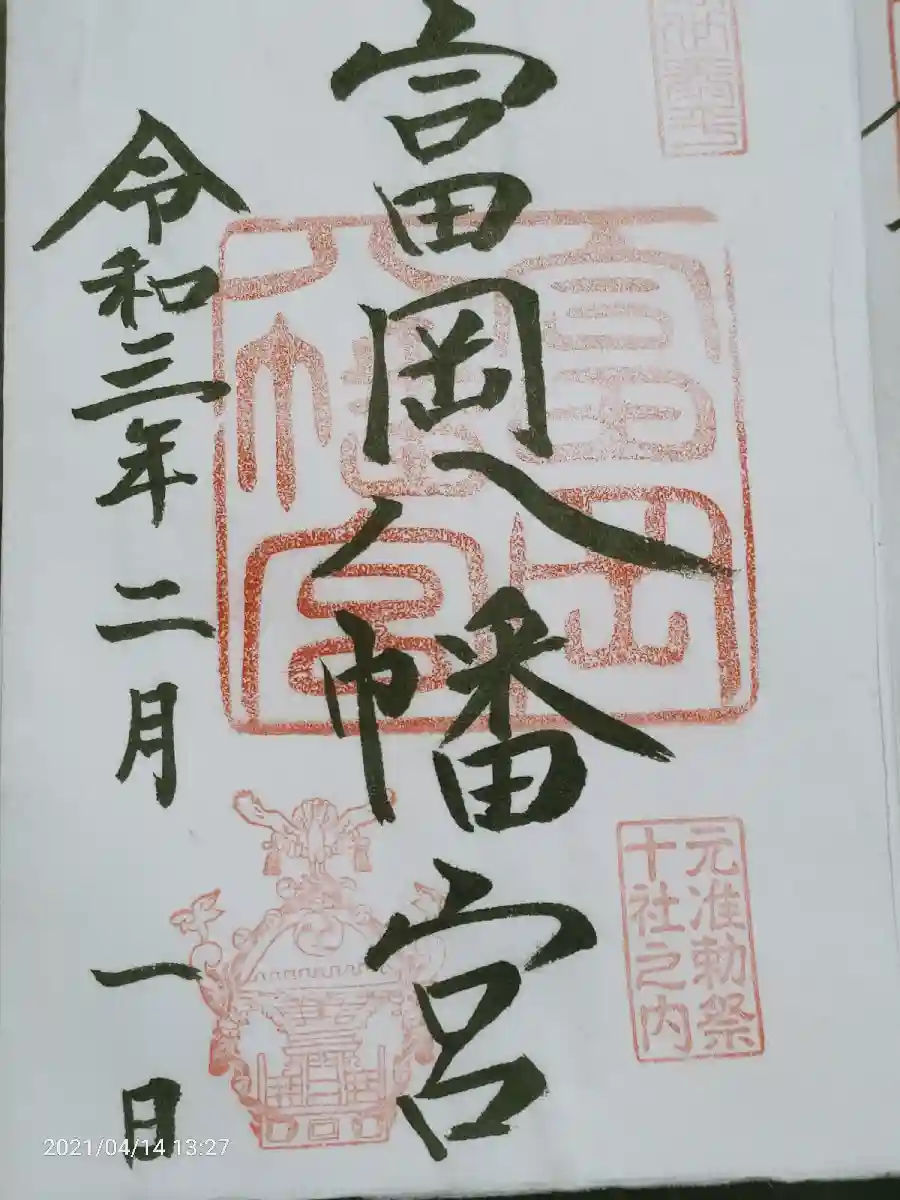 富岡八幡宮
令和三年二月一日
富岡八幡宮
元准勅祭
十社之内
2021/04/14 13:27